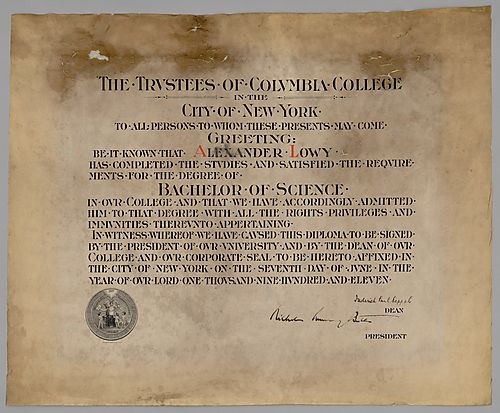 THE·TRVSTEES·OF·COLVMBIA·COLLEGE
IN·THE
CITY·OF·NEW·YORK·
TO·ALL·PERSONS·TO·WHOM·THESE·PRESENTS·MAY·COME·
GREETING:
BE·IT·KNOWN·THAT· ALEXANDER·LOWY·
HAS·COMPLETED·THE·STVDIES·AND·SATISFIED·THE·REQVIRE-
MENTS·FOR·THE·DEGREE·OF·
BACHELOR·OF·SCIENCE·
IN·OVR·COLLEGE·AND·THAT·WE·HAVE·ACCORDINGLY·ADMITTED
HIM·TO·THAT·DEGREE·WITH·ALL·THE·RIGHTS·PRIVILEGES·AND
IMMVNITIES·THEREVNTO·APPERTAINING·
IN·WITNESS·WHEREOF·WE·HAVE·CAVSED·THIS·DIPLOMA·TO·BE·SIGNED
BY·THE·PRESIDENT·OF·OVR·VNIVERSITY·AND·BY·THE·DEAN·OF·OVR
COLLEGE·AND·OVR·CORPORATE·SEAL·TO·BE·HERETO·AFFIXED·IN
THE·CITY·OF·NEW·YORK·ON·THE·SEVENTH·DAY·OF·JVNE·IN·THE
YEAR·OF·OVR·LORD·ONE·THOVSAND·NINE·HVNDRED·AND·ELEVEN·
Frederick Paul Keppel
DEAN
Nicholas Murray Butler
PRESIDENT